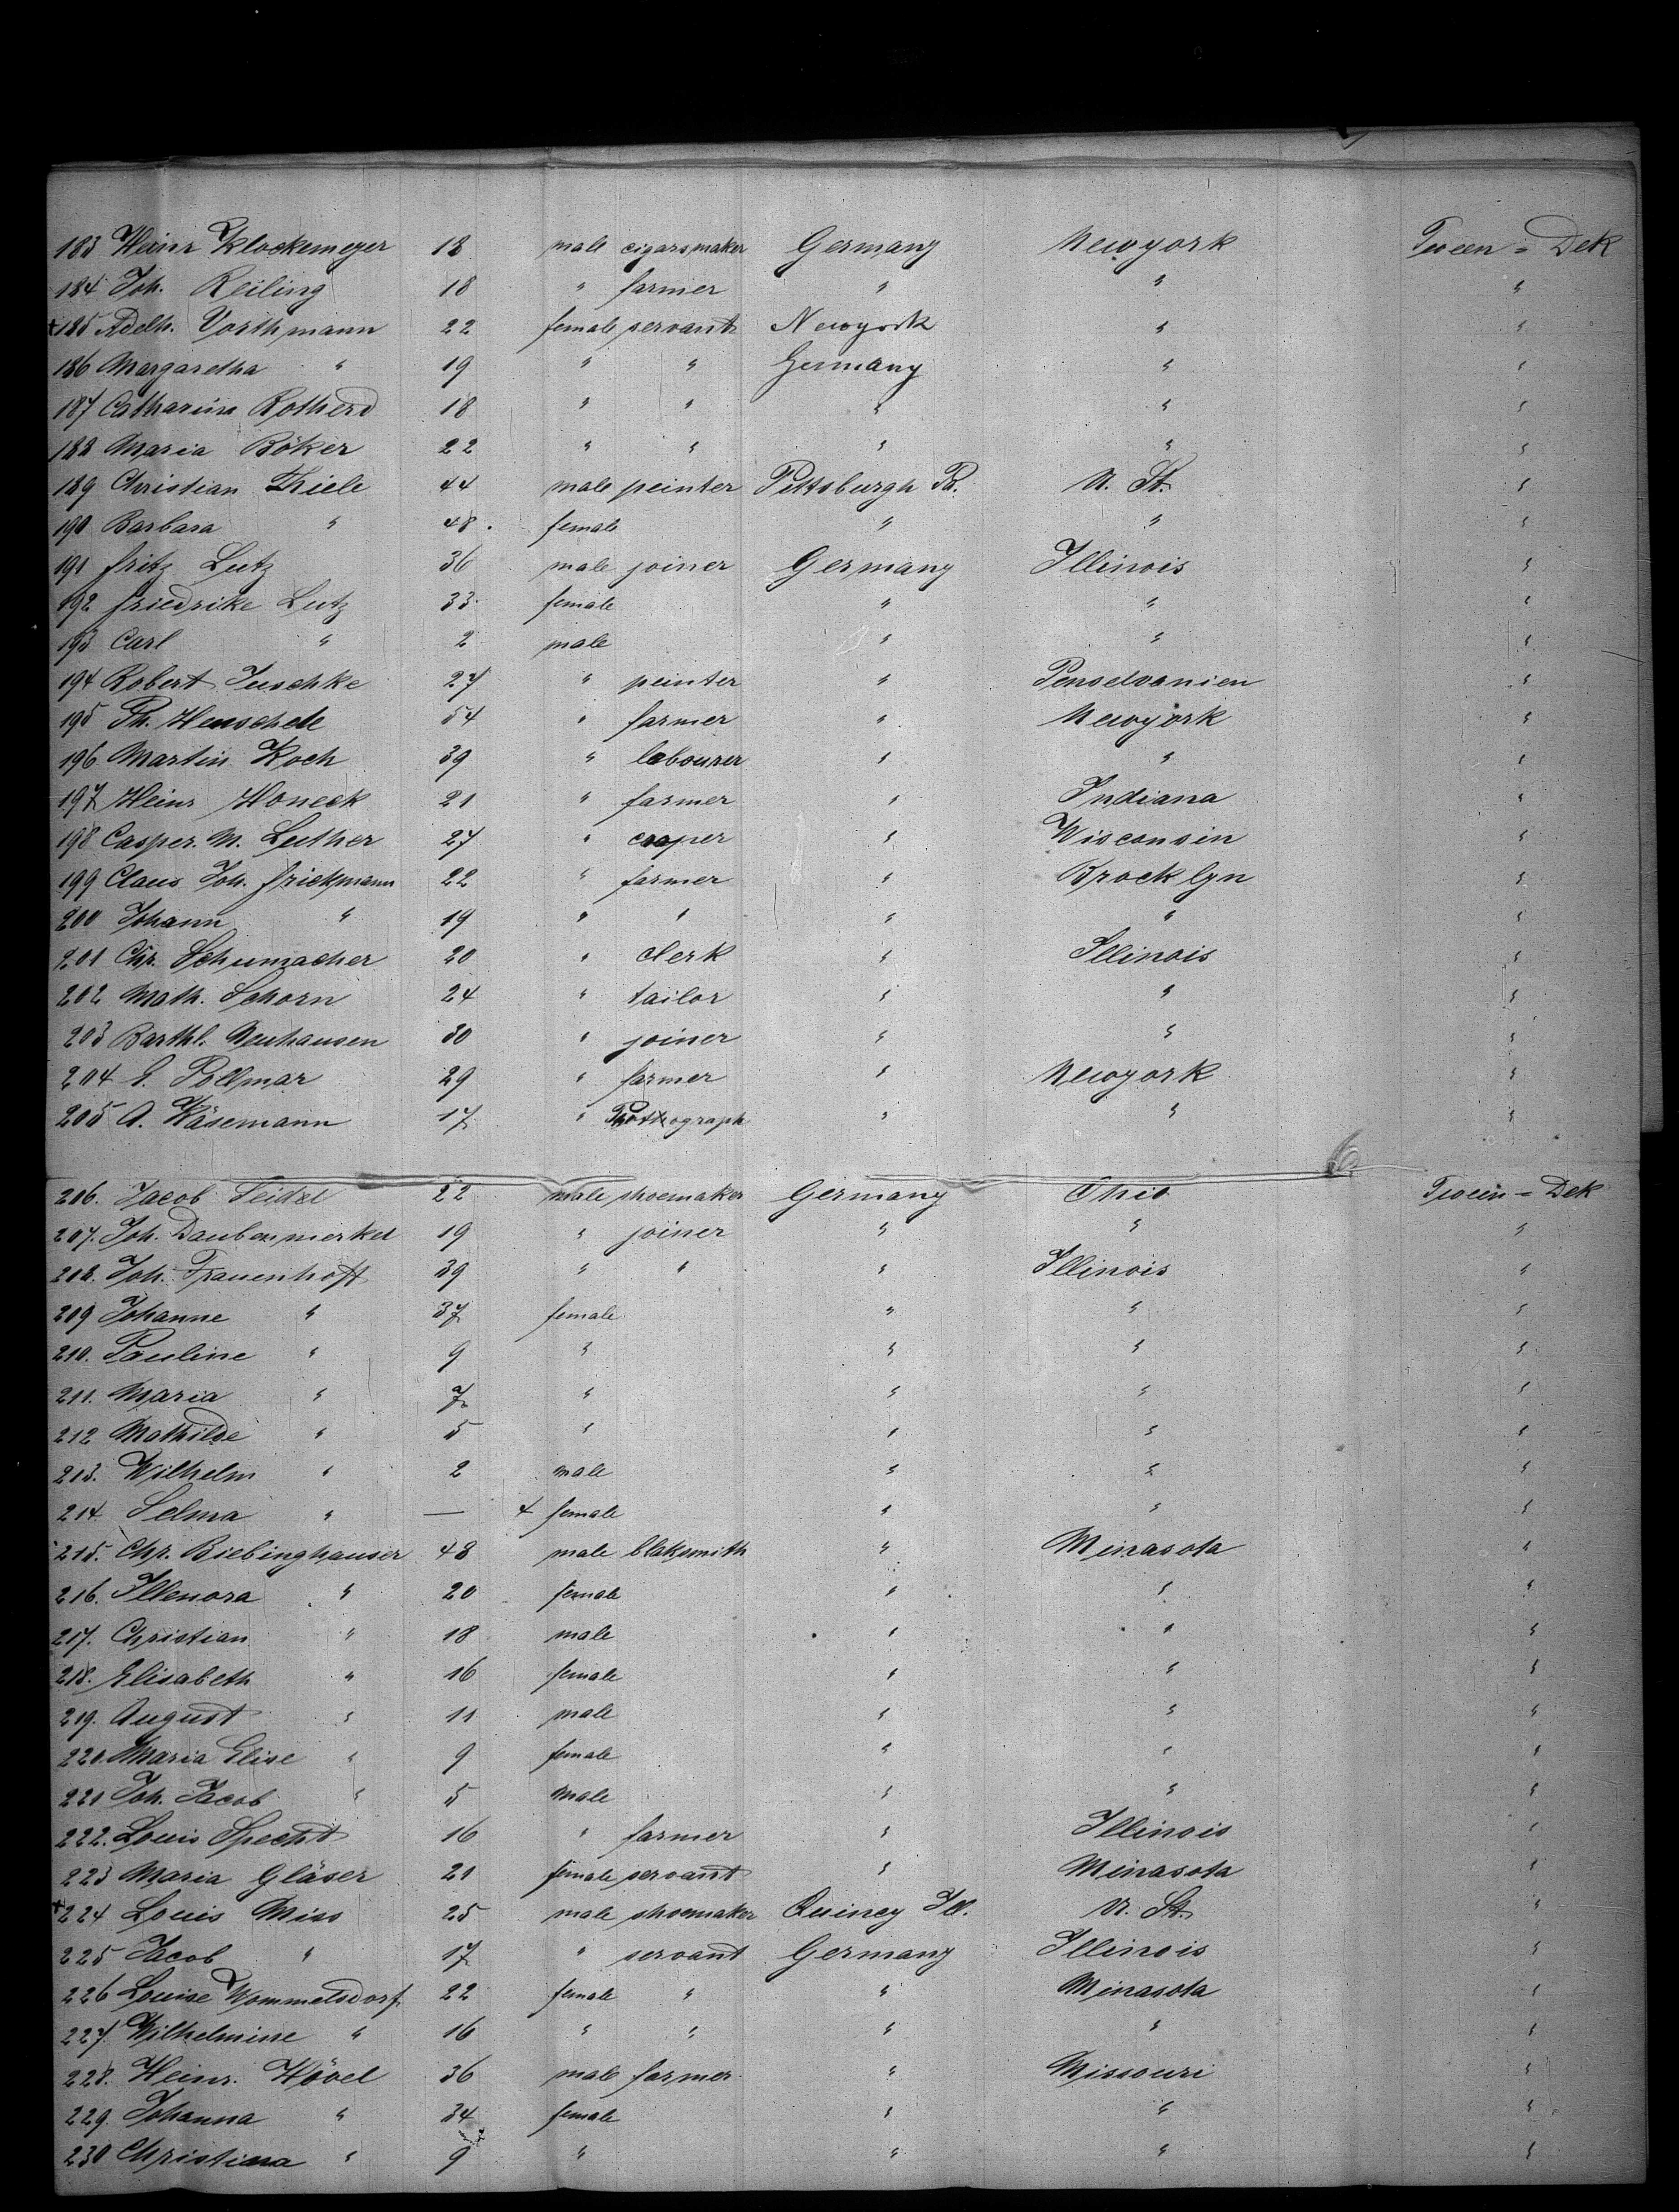 183 Heinr Klockemeyer 18 male cigarsmaker Germany Newyork Tween = Dek
184 Joh. Reiling 18 " farmer " " "
+185 Adelh. Vorthmann 22 female servant Newyork " "
186 Margaretha " 19 " " Germany " "
187 Catharina Rotherd 18 " " " " "
188 Maria Böker 22 " " " " "
189 Christian Thiele 44 male peinter Pittsburgh Pa. U. St. "
190 Barbara " 48. female " " "
191 Fritz Lutz 36 male joiner Germany Illinois "
192 Friedrike Lutz 33 female " " "
193 Carl " 2 male " " "
194 Robert Juschke 27 " peinter " Penselvanien "
195 Ph. Henschele 54 " farmer " Newyork "
196 Martin Koch 39 " labourer " " "
197 Heinr Honeck 21 " farmer " Indiana "
198 Casper. M. Luther 27 " cooper " Wisconsin "
199 Claus Joh. Frickmann 22 " farmer " Brocklyn "
200 Johann " 19 " " " " "
201 Chr. Schumacher 20 " clerk " Illinois "
202 Math. Schorn 24 " tailor " " "
203 Barthl. Neuhausen 30 " joiner " " "
204 E. Pollmar 29 " farmer " Newyork "
205 A. Käsemann 17 " Photograph " " "
6
206. Jacob Feidel 22 male shoemaker Germany Ohio Tween = Dek
207. Joh. Daubenmerkel 19 " joiner " " "
208. Joh. Frauenhoft 39 " " " Illinois "
209 Johanne " 37 female " " "
210. Pauline " 9 " " " "
211. Maria " 7 " " " "
212 Mathilde " 5 " " " "
213. Wilhelm " 2 male " " "
214 Selma " — + female " " "
215. Chr. Biebinghauser 48 male blaksmith " Minasota "
216. Illenora " 20 female " " "
217. Christian " 18 male " " "
218. Elisabeth " 16 female " " "
219. August " 11 male " " "
220. Maria Elise " 9 female " " "
221 Joh. Jacob " 5 male " " "
222. Louis Specht 16 " farmer " Illinois "
223 Maria Gläser 21 female servant " Minasota "
+224 Louis Miss 25 male shoemaker Quincy Ill. U. St. "
225 Jacob " 17 " servant Germany Illinois "
226 Louise Wommelsdorf 22 female " " Minasota "
227. Wilhelmine " 16 " " " " "
228. Heinr. Hövel 36 male farmer " Missouri "
229. Johanna " 34 female " " "
230 Christina " 9 " " " "